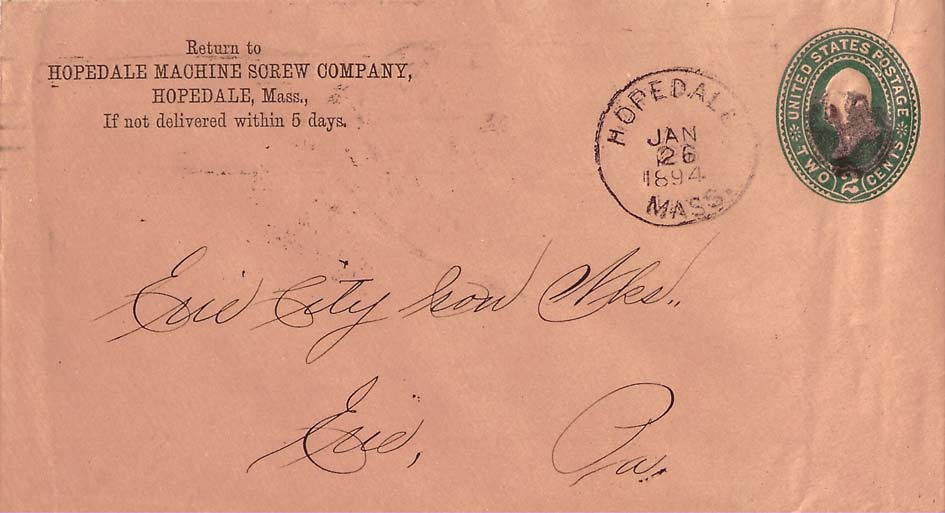 Return to
HOPEDALE MACHINE SCREW COMPANY,
HOPEDALE, Mass.,
If not delivered within 5 days.
HOPEDALE
JAN
26
1894
MASS.
UNITED STATES POSTAGE
TWO 2 CENTS
Erie City Iron Wks.,
Erie, Pa.